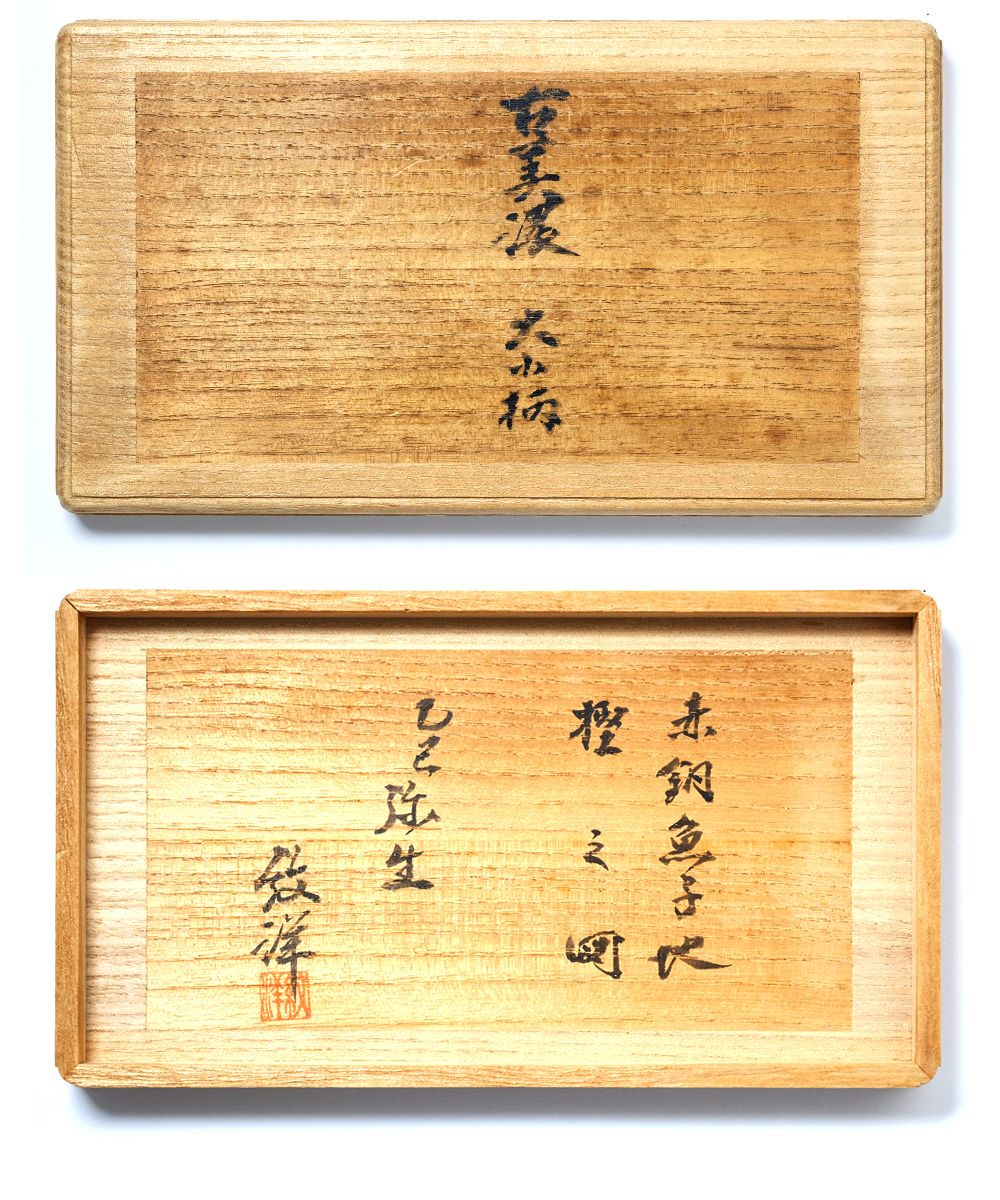 古美濃 大小柄
赤銅魚子地
樫之図
乙巳弥生